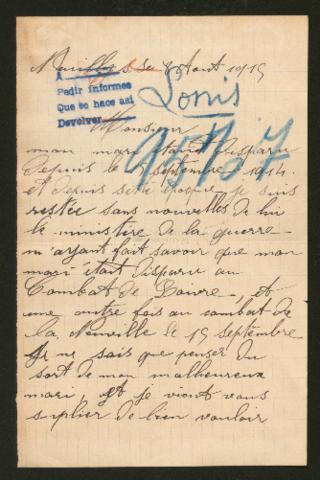 Neuilly s. Seine 8 Aout 1915
A
Pedir informes
Que se hace asi
Devolver
Louis
Monsieur
mon mari étant disparu
depuis le septembre 1914.
et depuis sette époque je suis
restée sans nouvelles de lui
le ministère de la guerre
m'ayant fait savoir que mon
mari était disparu au
Combat de Loivre, et
une autre fois au combat de
la Neuville le 19 septembre
Je ne sais que penser du
sort de mon malheureux
mari, et je vient vous
suplier de bien vouloir